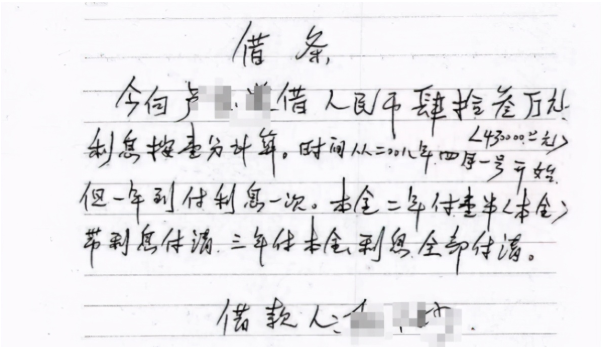 借条,
今向卢借人民币肆拾叁万元
<430000.00元>
利息按壹分计算。时间从二〇〇八年四月一号开始
但一年到付利息一次。本金二年付壹半<本金>
带利息付清.三年付本金利息全部付清。
借款人: